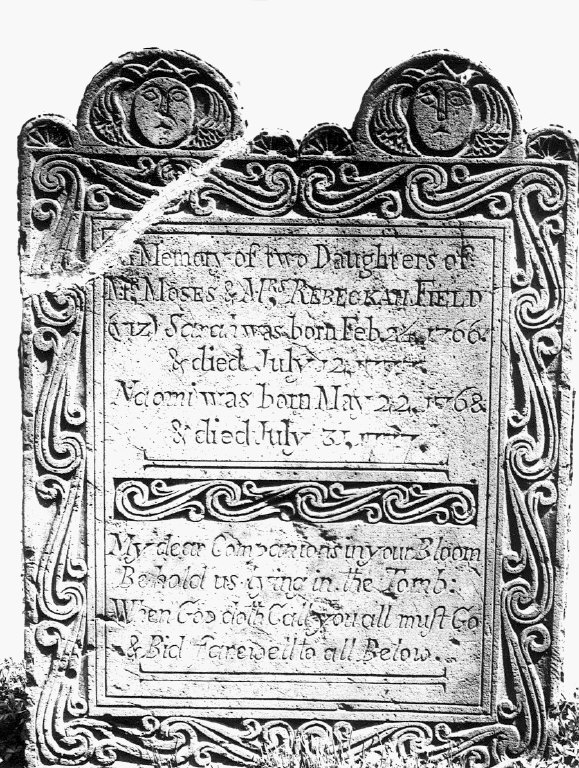 Memory of two Daughters of
Mr. Moses & Mrs. Rebeckah Field
(viz) Sarah was born Feb. 24, 1766.
& died July 12, 1777.
Naomi was born May 22, 1768
& died July 31, 1777.
My dear Companions in your Bloom
Behold us lying in the Tomb:
When God doth Call you all muſt Go
& Bid farewell to all Below.